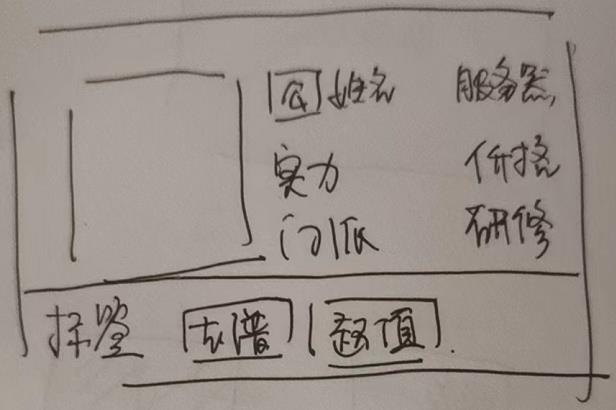 姓名 服务器
实力 价格
门派 研修
探鉴 靠谱 超值